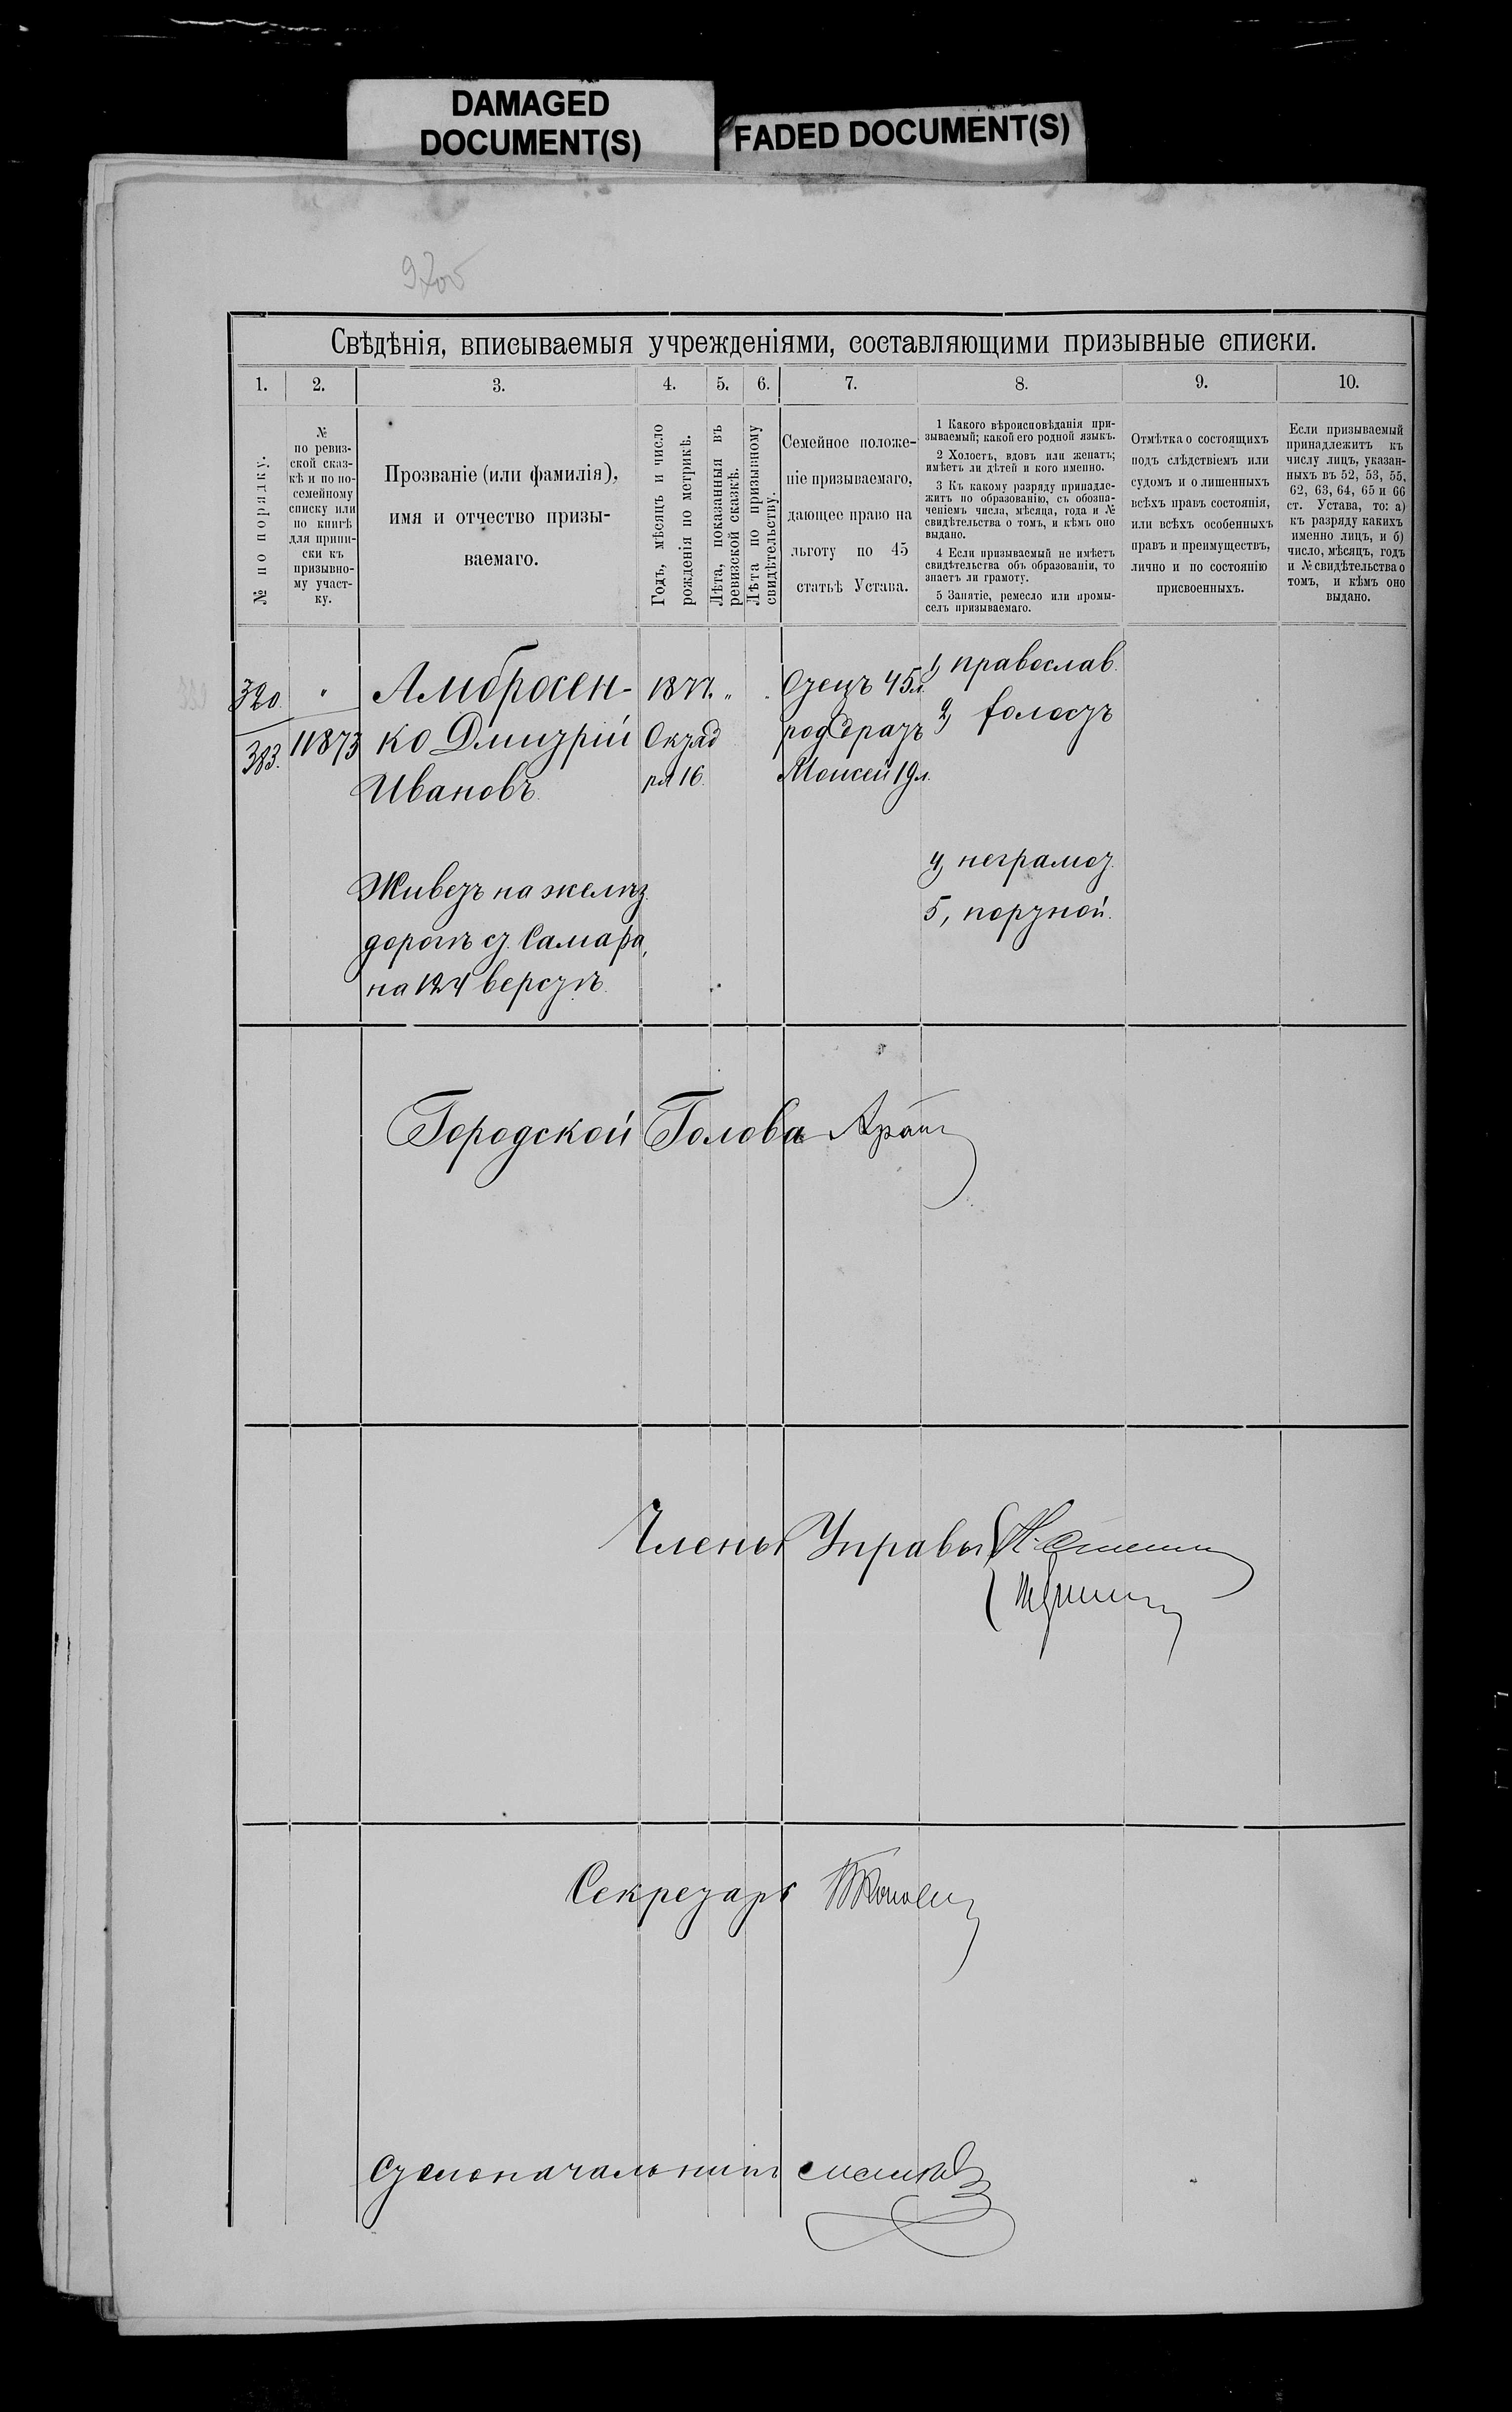 DAMAGED
DOCUMENT(S)
FADED DOCUMENT(S)
Свѣдѣнія, вписываемыя учрежденіями, составляющими призывные списки.
1. 2. 3. 4. 5. 6. 7. 8. 9. 10.
№ по порядку.
№
по ревиз-
ской сказ-
кѣ и по по-
семейному
списку или
по книгѣ
для припи-
ски къ
призывно-
му участ-
ку.
Прозваніе (или фамилія),
имя и отчество призы-
ваемаго.
Годъ, мѣсяцъ и число
рожденія по метрикѣ.
Лѣта, показанныя въ
ревизской сказкѣ.
Лѣта по призывному
свидѣтельству.
Семейное положе-
ніе призываемаго,
дающее право на
льготу по 45
статьѣ Устава.
1 Какого вѣроисповѣданія при-
зываемый; какой его родной языкъ.
2 Холостъ, вдовъ или женатъ;
имѣетъ ли дѣтей и кого именно.
3 Къ какому разряду принадле-
житъ по образованію, съ обозна-
ченіемъ числа, мѣсяца, года и №
свидѣтельства о томъ, и кѣмъ оно
выдано.
4 Если призываемый не имѣетъ
свидѣтельства объ образованіи, то
знаетъ ли грамоту.
5 Занятіе, ремесло или промы-
селъ призываемаго.
Отмѣтка о состоящихъ
подъ слѣдствіемъ или
судомъ и о лишенныхъ
всѣхъ правъ состоянія,
или всѣхъ особенныхъ
правъ и преимуществъ,
лично и по состоянію
присвоенныхъ.
Если призываемый
принадлежитъ къ
числу лицъ, указан-
ныхъ въ 52, 53, 55,
62, 63, 64, 65 и 66
ст. Устава, то: а)
къ разряду какихъ
именно лицъ, и б)
число, мѣсяцъ, годъ
и № свидѣтельства о
томъ, и кѣмъ оно
выдано.
320
383.
"
11873
Амбросен-
ко Дмитрій
Ивановъ.
1877.
Октяб
ря 16.
"
Отецъ 45 л.
род братъ
Моисей 19 л.
1, православ.
2, холостъ
4, неграмот.
5, портной.
Живетъ на желѣз.
дорогѣ ст. Самара,
на 124 верстѣ.
Городской Голова
Члены Управы
Секретарь
Столоначальникъ